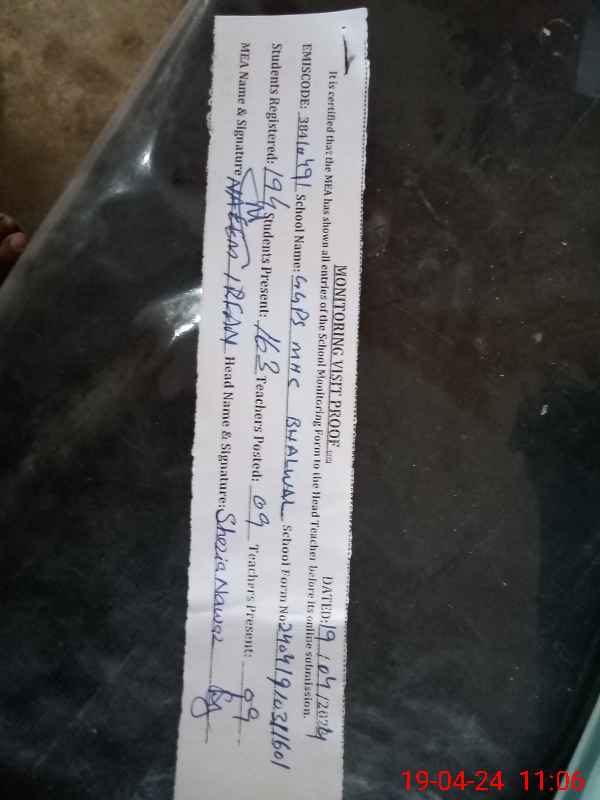 MONITORING VISIT PROOF
DATED: 19/04/2024
It is certified that the MEA has shown all entries of the School Monitoring Form to the Head Teacher before its online submission.
EMISCODE: 38410491 School Name: GGPS MHC BHALWAL School Form No 24041910311601
Students Registered: 194 Students Present: 163 Teachers Posted: 09 Teachers Present: 09
MEA Name & Signature NAEEM IRFAN Head Name & Signature: Shezia Nawaz
19-04-24 11:06